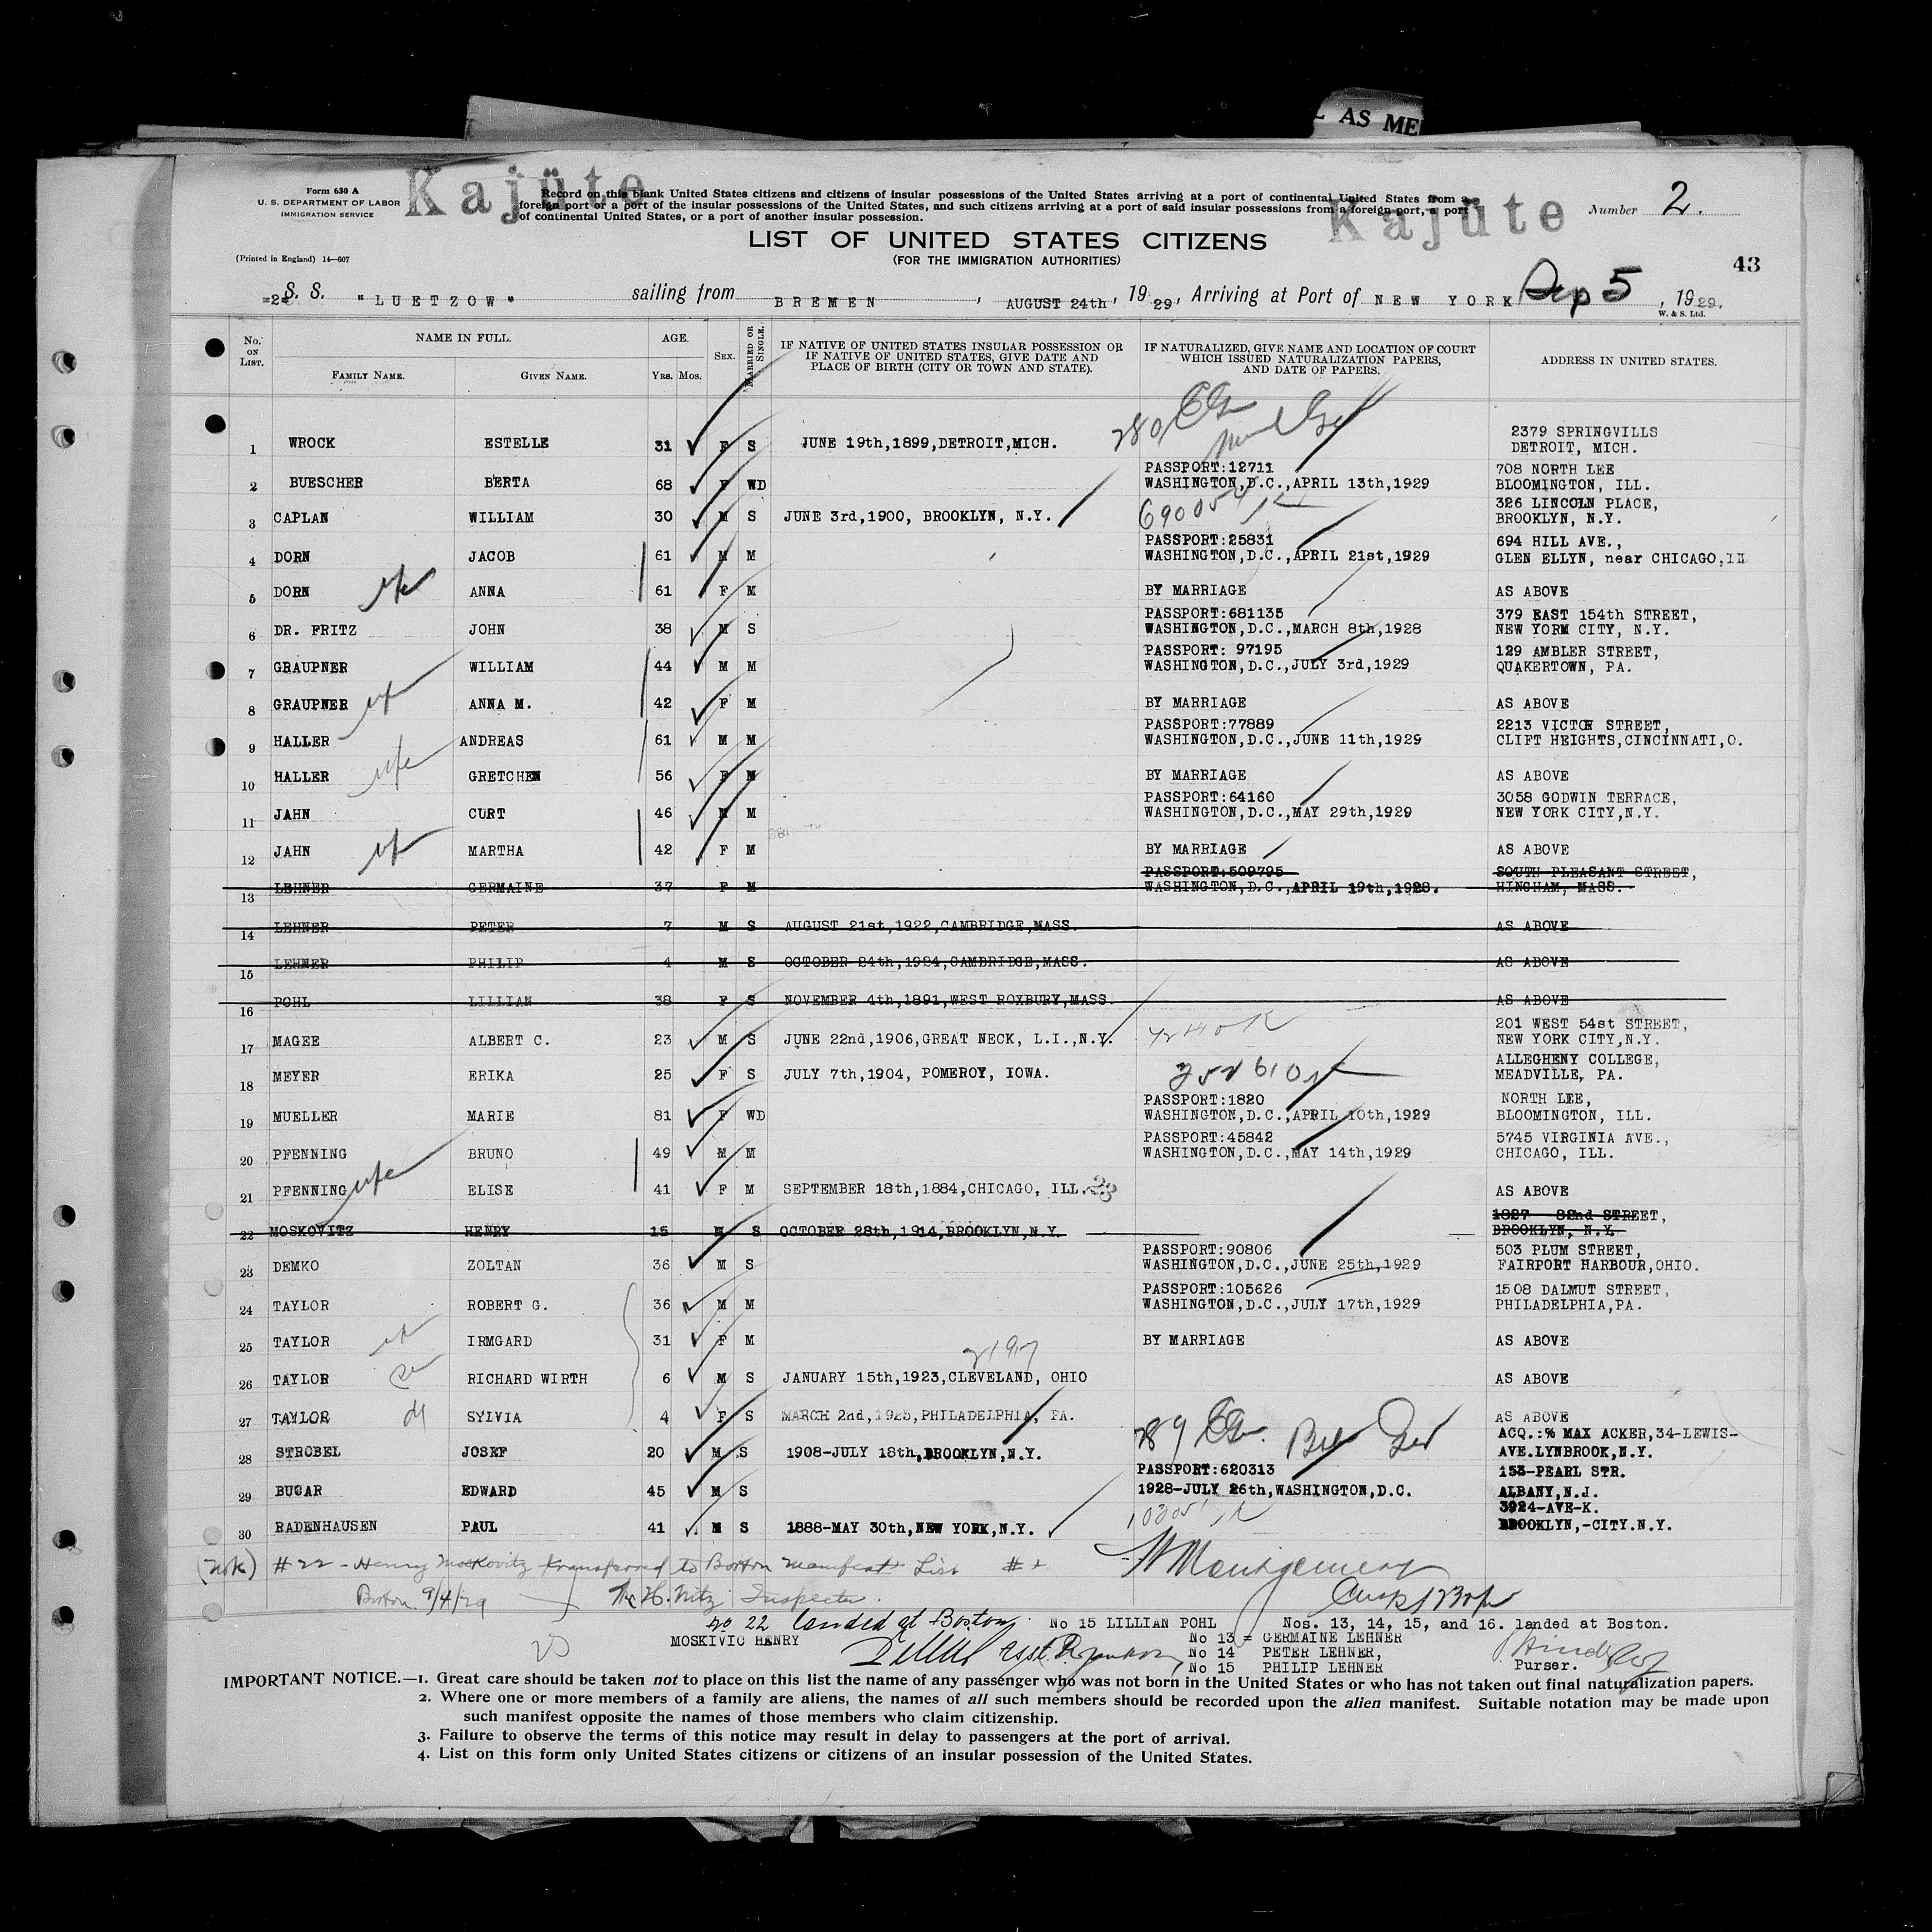 L AS ME
Form 630 A
U. S. DEPARTMENT OF LABOR
IMMIGRATION SERVICE
(Printed in England) 14—607
Kajüte
Record on this blank United States citizens and citizens of insular possessions of the United States arriving at a port of continental United States from a
foreign port or a port of the insular possessions of the United States, and such citizens arriving at a port of said insular possessions from a foreign port, a port
of continental United States, or a port of another insular possession.
Kajüte
Number 2.
LIST OF UNITED STATES CITIZENS
(FOR THE IMMIGRATION AUTHORITIES)
43
=2= S. S. "LUETZOW" sailing from BREMEN, AUGUST 24th, 1929, Arriving at Port of NEW YORK Sep 5, 1929.
W. & S. Ltd.
No. ON LIST. NAME IN FULL. FAMILY NAME. GIVEN NAME. AGE. YRS. MOS. SEX. MARRIED OR SINGLE. IF NATIVE OF UNITED STATES INSULAR POSSESSION OR IF NATIVE OF UNITED STATES, GIVE DATE AND PLACE OF BIRTH (CITY OR TOWN AND STATE). IF NATURALIZED, GIVE NAME AND LOCATION OF COURT WHICH ISSUED NATURALIZATION PAPERS, AND DATE OF PAPERS. ADDRESS IN UNITED STATES.
1 WROCK ESTELLE 31 F S JUNE 19th,1899,DETROIT,MICH. 280 2379 SPRINGVILLS DETROIT, MICH.
2 BUESCHER BERTA 68 F WD PASSPORT:12711 WASHINGTON,D.C.,APRIL 13th,1929 708 NORTH LEE BLOOMINGTON, ILL.
3 CAPLAN WILLIAM 30 M S JUNE 3rd,1900, BROOKLYN, N.Y. 690054 326 LINCOLN PLACE, BROOKLYN, N.Y.
4 DORN JACOB 61 M M PASSPORT:25831 WASHINGTON,D.C.,APRIL 21st,1929 694 HILL AVE., GLEN ELLYN, near CHICAGO,Ill
5 DORN wfe ANNA 61 F M BY MARRIAGE AS ABOVE
6 DR. FRITZ JOHN 38 M S PASSPORT:681135 WASHINGTON,D.C.,MARCH 8th,1928 379 EAST 154th STREET, NEW YORK CITY, N.Y.
7 GRAUPNER WILLIAM 44 M M PASSPORT: 97195 WASHINGTON,D.C.,JULY 3rd,1929 129 AMBLER STREET, QUAKERTOWN, PA.
8 GRAUPNER wf ANNA M. 42 F M BY MARRIAGE AS ABOVE
9 HALLER ANDREAS 61 M M PASSPORT:77889 WASHINGTON,D.C.,JUNE 11th,1929 2213 VICTOR STREET, CLIFT HEIGHTS,CINCINNATI,O.
10 HALLER wfe GRETCHEN 56 F M BY MARRIAGE AS ABOVE
11 JAHN CURT 46 M M PASSPORT:64160 WASHINGTON,D.C.,MAY 29th,1929 3058 GODWIN TERRACE, NEW YORK CITY,N.Y.
12 JAHN wf MARTHA 42 F M BY MARRIAGE AS ABOVE
13 LEHNER GERMAINE 37 F M PASSPORT:509795 WASHINGTON,D.C.,APRIL 19th,1928. SOUTH PLEASANT STREET, HINGHAM, MASS.
14 LEHNER PETER 7 M S AUGUST 21st,1922,CAMBRIDGE,MASS. AS ABOVE
15 LEHNER PHILIP 4 M S OCTOBER 24th,1924,CAMBRIDGE,MASS. AS ABOVE
16 POHL LILLIAN 38 F S NOVEMBER 4th,1891,WEST ROXBURY,MASS. AS ABOVE
17 MAGEE ALBERT C. 23 M S JUNE 22nd,1906,GREAT NECK, L.I.,N.Y. 201 WEST 54st STREET, NEW YORK CITY,N.Y.
18 MEYER ERIKA 25 F S JULY 7th,1904, POMEROY, IOWA. ALLEGHENY COLLEGE, MEADVILLE, PA.
19 MUELLER MARIE 81 F WD PASSPORT:1820 WASHINGTON,D.C.,APRIL 10th,1929 NORTH LEE, BLOOMINGTON, ILL.
20 PFENNING BRUNO 49 M M PASSPORT:45842 WASHINGTON,D.C.,MAY 14th,1929 5745 VIRGINIA AVE., CHICAGO, ILL.
21 PFENNING wfe ELISE 41 F M SEPTEMBER 18th,1884,CHICAGO, ILL. 23 AS ABOVE
22 MOSKOVITZ HENRY 15 M S OCTOBER 28th,1914,BROOKLYN,N.Y. 1827 82nd STREET, BROOKLYN, N.Y.
23 DEMKO ZOLTAN 36 M S PASSPORT:90806 WASHINGTON,D.C.,JUNE 25th,1929 503 PLUM STREET, FAIRPORT HARBOUR,OHIO.
24 TAYLOR ROBERT G. 36 M M PASSPORT:105626 WASHINGTON,D.C.,JULY 17th,1929 1508 DALMUT STREET, PHILADELPHIA,PA.
25 TAYLOR wf IRMGARD 31 F M BY MARRIAGE AS ABOVE
26 TAYLOR RICHARD WIRTH 6 M S JANUARY 15th,1923,CLEVELAND, OHIO AS ABOVE
27 TAYLOR SYLVIA 4 F S MARCH 2nd,1925,PHILADELPHIA, PA. AS ABOVE
28 STROBEL JOSEF 20 M S 1908-JULY 18th,BROOKLYN,N.Y. 289 ACQ.:% MAX ACKER,34-LEWIS- AVE.LYNBROOK,N.Y.
29 BUGAR EDWARD 45 M S PASSPORT:620313 1928-JULY 26th,WASHINGTON,D.C. 153-PEARL STR. ALBANY,N.J.
30 RADENHAUSEN PAUL 41 M S 1888-MAY 30th,NEW YORK,N.Y. 3924-AVE-K. BROOKLYN,-CITY.N.Y.
(Note) #22 - Henry Moskovitz transferred to Boston Manifest List #
Boston 9/4/29 Inspector.
Montgomery
No 22 landed at Boston. No 15 LILLIAN POHL Nos. 13, 14, 15, and 16. landed at Boston.
MOSKIVIC HENRY No 13 = GERMAINE LEHNER
No 14 PETER LEHNER,
No 15 PHILIP LEHNER Purser.
IMPORTANT NOTICE.—1. Great care should be taken not to place on this list the name of any passenger who was not born in the United States or who has not taken out final naturalization papers.
2. Where one or more members of a family are aliens, the names of all such members should be recorded upon the alien manifest. Suitable notation may be made upon
such manifest opposite the names of those members who claim citizenship.
3. Failure to observe the terms of this notice may result in delay to passengers at the port of arrival.
4. List on this form only United States citizens or citizens of an insular possession of the United States.